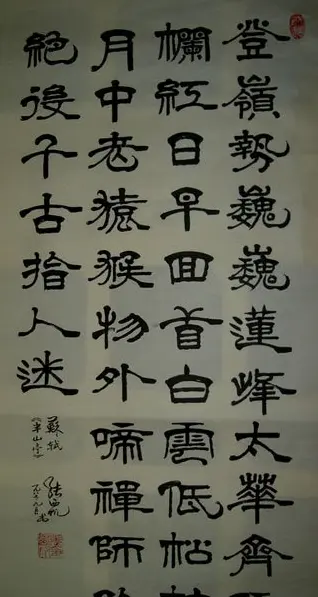 登嶺勢巍巍蓮峰太華齊
欄紅日早回首白雲低松
月中老猿猴物外啼禪師
絕後千古指人迷
蘇軾
《半山亭》